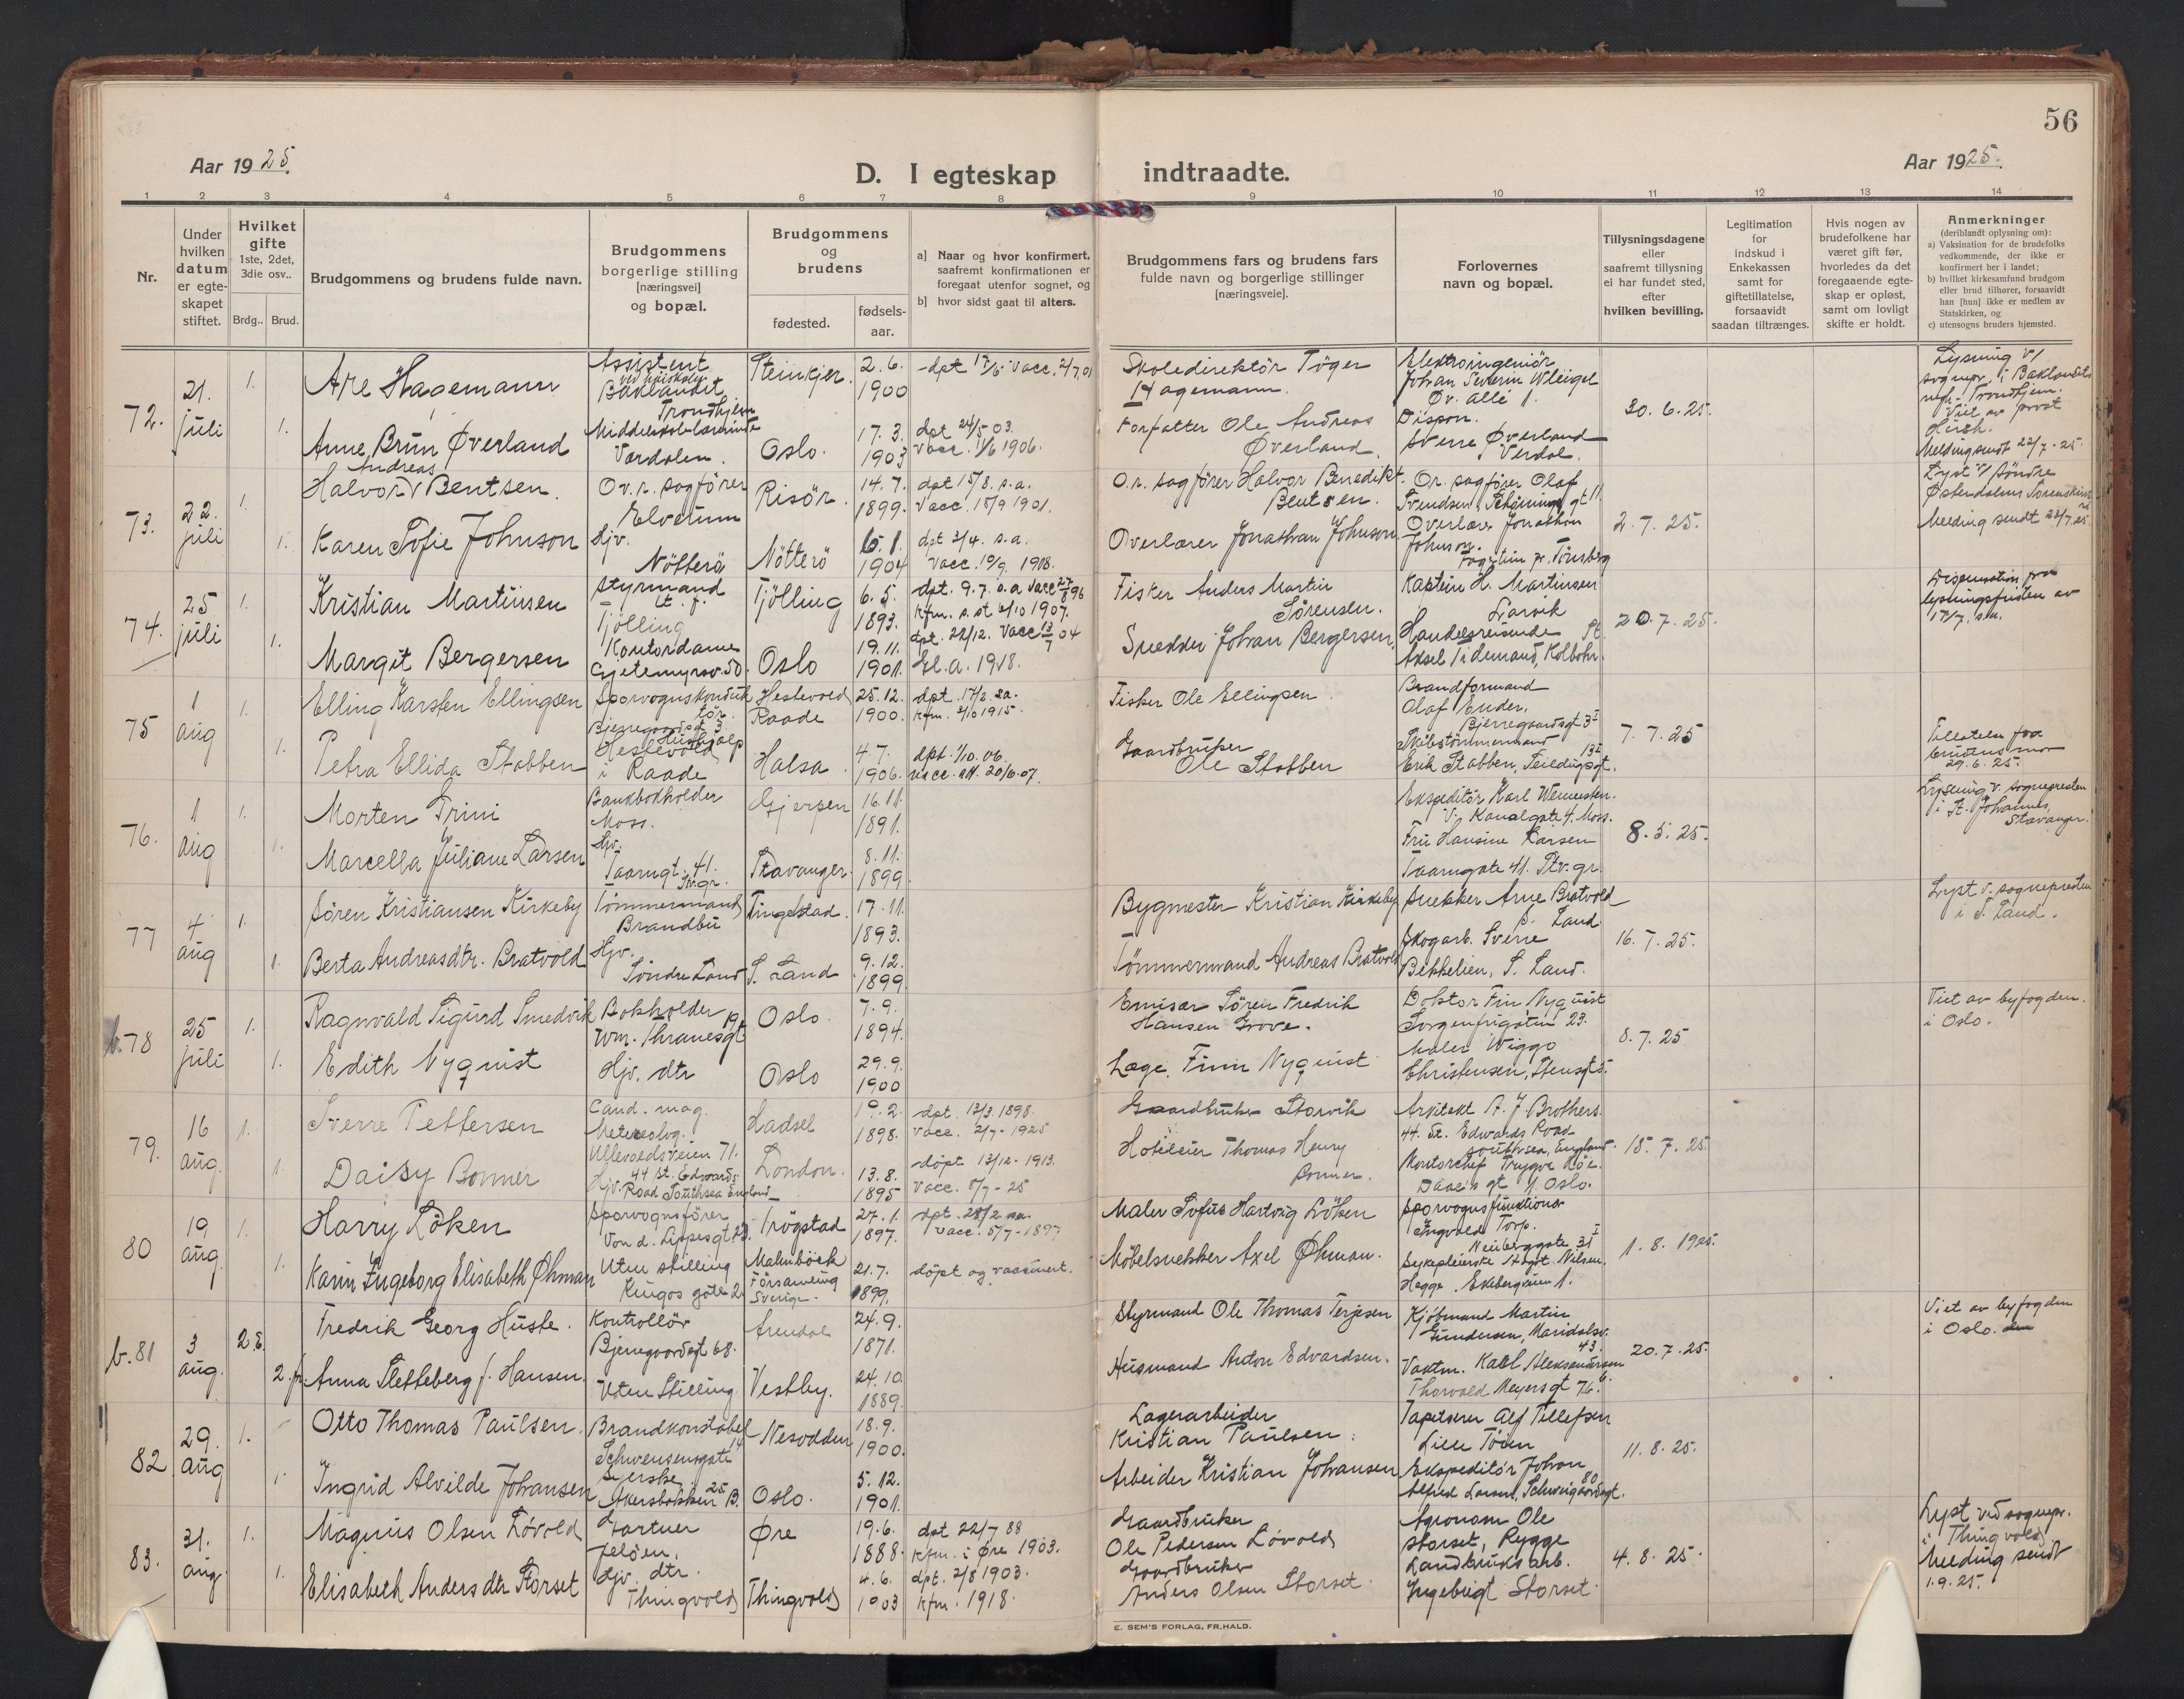 56
Aar 1925.
D. I egteskap indtraadte.
Aar 1925.
1 2 3 4 5 6 7 8 9 10 11 12 13 14
Nr.
Under hvilken datum er egte-skapet stiftet.
Hvilket gifte 1ste, 2det, 3die osv..
Brdg.. Brud.
Brudgommens og brudens fulde navn.
Brudgommens borgerlige stilling [næringsvei] og bopæl.
Brudgommens og brudens
fødested.
fødsels-aar.
a] Naar og hvor konfirmert, saafremt konfirmationen er foregaat utenfor sognet, og
b] hvor sidst gaat til alters.
Brudgommens fars og brudens fars fulde navn og borgerlige stillinger [næringsveie].
Forlovernes navn og bopæl.
Tillysningsdagene eller saafremt tillysning ei har fundet sted, efter hvilken bevilling.
Legitimation for indskud i Enkekassen samt for giftetillatelse, forsaavidt saadan tiltrænges.
Hvis nogen av brudefolkene har været gift før, hvorledes da det foregaaende egte-skap er opløst, samt om lovligt skifte er holdt.
Anmerkninger (deriblandt oplysning om):
a) Vaksination for de brudefolks vedkommende, der ikke er konfirmert her i landet;
b) hvilket kirkesamfund brudgom eller brud tilhører, forsaavidt han [hun] ikke er medlem av Statskirken, og
c) utensogns bruders hjemsted.
72. 21. juli 1. Are Hagemann Assistent ved høiskolen Baklandet Trondhjem Steinkjer. 2.6. 1900 Skoledirektör Töger Hagemann. Elektroingeniör Johan Severin 30.6.25.
1. Anne Brun Øverland Vordalen. Oslo. 17.3. 1903 dpt 24/5 03. Vacc. 1906. Forfatter Ole Andreas Øverland. Dispon. Sverre Øverland Verdal. Meldingsendt 22/7-25.
73. 22. juli Halvor Andreas Bentsen. Ov.r. sagförer Elverum Risör. 14.7. 1899. dpt 15/8. s.a. Vacc. 15/9 1901. O.r. sagförer Halvor Benedikt Bentsen. Or. sagförer Olaf 2.7.25. Lyst v/ Söndre Østerdalens
1. Karen Sofie Johnson Hjv. Nötterö Nötterö 1904 dpt 3/4. s.a. Vacc. 19/9. 1918. Overlærer Jonathan Johnson. Overlærer Jonathan Johnson. pr. Tönsberg Melding sendt
74. 25 juli 1. Kristian Martinsen Styrmand Tjölling Tjölling 6.5. 1893. dpt. 9.7. s.a. kfm. s.st 1907. Fisker Anders Martin Sörensen. Kaptein H. Martinsen Larvik 20.7.25. Dispensation fra lysningsfristen av
1. Margit Bergersen Kontordame Gjetemyrsv. 50. Oslo 19.11. 1901. dpt. 22/12. Snedker Johan Bergersen. Handelsreisende Aksel Tidemand, Kolbotn.
75 1 aug 1. Elling Karsten Ellingsen Sporvognskonduktör. Heslevold Raade 25.12. 1900. dpt. 17/2. kfm. 3/10 1915. Fisker Ole Ellingsen Brandformand Olaf Ender. Bjerregaardsgt 3 7.7.25
1. Petra Ellida Stobben Hushjælp Heslevold i Raade Halsa 4.7. 1906. dpt. 1/10.06. Gaardbruker Ole Stobben Skibstömmermand Erik Stabben, Seilduksgt. Tillatelse fra brudens mor 29.6.25.
76. 1 aug 1. Morten Trini Bankbokholder Moss. Gjerpen 16.11. 1891. Ekspeditör Karl Kanalgate 4. Moss. 8.5.25. Lysning v. sognepresten i St. Johannes, Stavanger.
1. Marcella Juliane Larsen Hjv. Taarngt. 41. Stv.gr. Stavanger. 8.11. 1899 Fru Hansine Larsen Taarngate 41. Stv.gr.
77 4 aug 1. Sören Kristiansen Kirkeby Tömmermand Brandbu Tingelstad. 17.11. 1893. Bygmester Kristian Kirkeby Snekker Arne Bratvold S. Land 16.7.25. Lyst v. sognepresten i S. Land.
1. Berta Andreasdtr. Bratvold Hjv. Söndre Land S. Land 9.12. 1899. Tömmermand Andreas Bratvold Skogarb. Sverre Bekkelien, S. Land.
b.78 25 juli 1. Ragnvald Sigurd Smedvik Bokholder Wm. Thranesgt 19. Oslo. 7.9. 1894. Emisær Sören Fredrik Hansen Grove. Doktor Finn Nyquist Sorgenfrigaten 23. 8.7.25 Viet av byfogden i Oslo.
1. Edith Nyquist Hjv. dtr Oslo 29.9. 1900 Læge Finn Nyquist Maler Wiggo Christensen, Stensgt 5.
79. 16 aug. 1. Sverre Pettersen Cand. mag. Metereolog. Ullevoldsveien 71. Hadsel 19.2. 1898. dpt. 13/3. 1898. Vacc. 2/7-1925 Gaardbruker Storvik Arkitekt A. J Brothers. 44. St. Edwards Road Southsea, England. 15.7.25.
1. Daisy Bonner Hjv. 44 St. Edwards Road Southsea England London. 13.8. 1895 döpt 13/12-1913. Vacc. 5/7-25 Hoteleier Thomas Henry Bonner. Kontorchef Trygve Oslo.
80 19 aug. 1. Harry Löken Sporvognsförer Von d. Lippesgt Trögstad 27.1. 1897. dpt. 28/2. Vacc. 5/7-1897 Maler Sofus Hartvig Löken Sporvognsfunktionær Ingvald Torp. 1.8.1925.
1. Karin Ingeborg Elisabeth Øhman Uten stilling Kingos gate 2. Malmbäck Församling Sverige. 21.7. 1899. döpt og vaccinert. Möbelsnekker Axel Øhman. Sykepleierske Ekebergveien 1.
b.81 3 aug. 2 E. Fredrik Georg Huste. Kontrollör Bjerregaardsgt 68. Arendal 24.9. 1871. Styrmand Ole Thomas Terjesen Kjöbmand Martin Gundersen, Maridalsv. 43. 20.7.25. Viet av byfogden i Oslo.
2. fr. Anna Sletteberg f. Hansen. Uten Stilling. Vestby. 24.10. 1889. Husmand Anton Edvardsen. Vaktm. Karl Aleksandersen Thorvald Meyersgt 76.
82 29. aug 1. Otto Thomas Paulsen. Brandkonstabel Schwensensgate 14 Nesodden 18.9. 1900. Lagerarbeider Kristian Paulsen. Tapetserer Alf Tellefsen Lille Töien 11.8.25.
1. Ingrid Alvilde Johansen Akersbakken 25 B. Oslo. 5.12. 1901. Arbeider Kristian Johansen Ekspeditör Johan Alfred Larsen, Schweigaardsgt. 80
83. 31. aug. 1. Magnus Olsen Lövold Gartner Jelöen. Øre 19.6. 1888. dpt 22/7 88 kfm. i Øre 1903. Gaardbruker Ole Pedersen Lövold Agronom Ole Storset, Rygge 4.8.25. Lyst ved sognepr. i Thingvold Melding sendt 1.9.25.
1. Elisabeth Andersdtr Storset Hjv. dtr. Thingvold Thingvold 4.6. 1903 dpt. 2/8 1903. kfm. 1918. Gaardbruker Anders Olsen Storset. Landbruksarb. Ingebrigt Storset.
E. SEM'S FORLAG, FR.HALD.